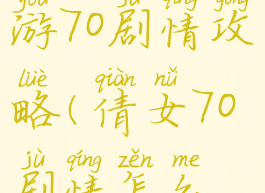 游70剧情攻
lüè qiàn nǚ
略(倩女70
jù qíng zěn me
剧情怎么